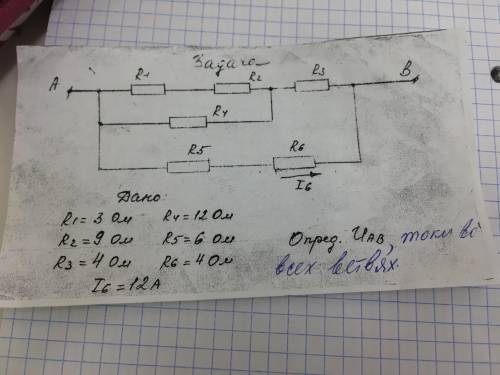 Задача
A R1 R2 R3 B
R4
R5 R6
I6
Дано:
R1 = 3 Ом R4 = 12 Ом
R2 = 9 Ом R5 = 6 Ом
R3 = 4 Ом R6 = 4 Ом
I6 = 12 А
Опред. UAB, токи во
всех ветвях.